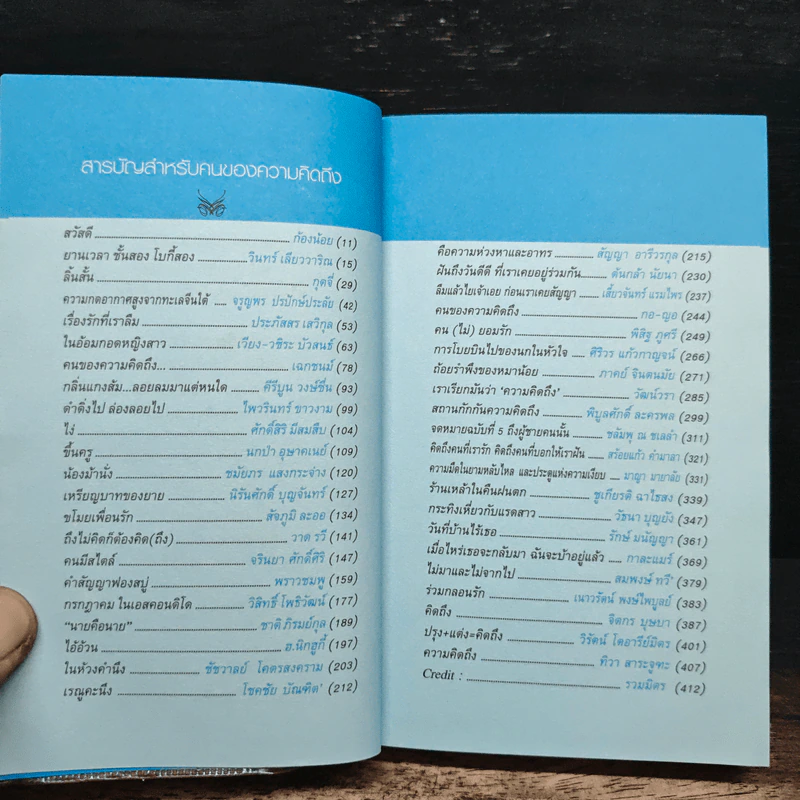 สารบัญสำหรับคนของความคิดถึง
สวัสดี ........ ก้องน้อย (11)
ยานเวลา ชั้นสอง โบกี้สอง ........ วินทร์ เลียววาริณ (15)
ลิ้นสั้น ........ กุดจี่ (29)
ความกดอากาศสูงจากทะเลจีนใต้ ........ จรูญพร ปรปักษ์ประลัย (42)
เรื่องรักที่เราลืม ........ ประภัสสร เสวิกุล (53)
ในอ้อมกอดหญิงสาว ........ เวียง-วชิระ บัวสนธ์ (63)
คนของความคิดถึง... ........ เฉกชนม์ (78)
กลิ่นแกงส้ม...ลอยลมมาแต่หนใด ........ คีรีบูน วงษ์ชื่น (93)
ดำดิ่งไป ล่องลอยไป ........ ไพวรินทร์ ขาวงาม (99)
ไง่ ........ ศักดิ์สิริ มีสมสืบ (104)
ขึ้นครู ........ นกป่า อุษาคเนย์ (109)
น้องม้านั่ง ........ ชมัยภร แสงกระจ่าง (120)
เหรียญบาทของยาย ........ นิรันศักดิ์ บุญจันทร์ (127)
ขโมยเพื่อนรัก ........ สัจภูมิ ละออ (134)
ถึงไม่คิดก็ต้องคิด(ถึง) ........ วาด รวี (141)
คนมีสไตล์ ........ จรินยา ศักดิ์ศิริ (147)
คำสัญญาฟองสบู่ ........ พราวชมพู (159)
กรกฎาคม ในเอสคอนดิโด ........ วิสิทธิ์ โพธิวัฒน์ (177)
“นายคือนาย” ........ ชาติ ภิรมย์กุล (189)
ไอ้อ้วน ........ ฮ.นิกฮูกี้ (197)
ในห้วงคำนึง ........ ชัชวาลย์ โคตรสงคราม (203)
เรณูคะนึง ........ โชคชัย บัณฑิต' (212)
คือความห่วงหาและอาทร ........ สัญญา อารีวรกุล (215)
ฝันถึงวันดีดี ที่เราเคยอยู่ร่วมกัน ........ ต้นกล้า นัยนา (230)
ลืมแล้วไยเจ้าเอย ก่อนเราเคยสัญญา ........ เสี้ยวจันทร์ แรมไพร (237)
คนของความคิดถึง ........ กอ-ญอ (244)
คน (ไม่) ยอมรัก ........ พิสิฐ ภูศรี (249)
การโบยบินไปของนกในหัวใจ ........ ศิริวร แก้วกาญจน์ (266)
ถ้อยรำพึงของหมาน้อย ........ ภาคย์ จินตนมัย (271)
เราเรียกมันว่า ‘ความคิดถึง’ ........ วัฒน์วรา (285)
สถานกักกันความคิดถึง ........ พิบูลศักดิ์ ละครพล (299)
จดหมายฉบับที่ 5 ถึงผู้ชายคนนั้น ........ ชลัมพุ ณ ชเลลำ (311)
คิดถึงคนที่เรารัก คิดถึงคนที่บอกให้เราฝัน ........ สร้อยแก้ว คำมาลา (321)
ความมืดในยามหลับใหล และประตูแห่งความเงียบ ........ มาญา มายาลัย (331)
ร้านเหล้าในคืนฝนตก ........ ชูเกียรติ ฉาไธสง (339)
กระทิงเหี่ยวกับแรดสาว ........ วัธนา บุญยัง (347)
วันที่บ้านไร้เธอ ........ รักษ์ มนัญญา (361)
เมื่อไหร่เธอจะกลับมา ฉันจะบ้าอยู่แล้ว ........ กาละแมร์ (369)
ไม่มาและไม่จากไป ........ สมพงษ์ ทวี' (379)
ร่วมกลอนรัก ........ เนาวรัตน์ พงษ์ไพบูลย์ (383)
คิดถึง ........ จิตกร บุษบา (387)
ปรุง+แต่ง=คิดถึง ........ วิรัตน์ โตอารีย์มิตร (401)
ความคิดถึง ........ ทิวา สาระจูฑะ (407)
Credit : ........ รวมมิตร (412)